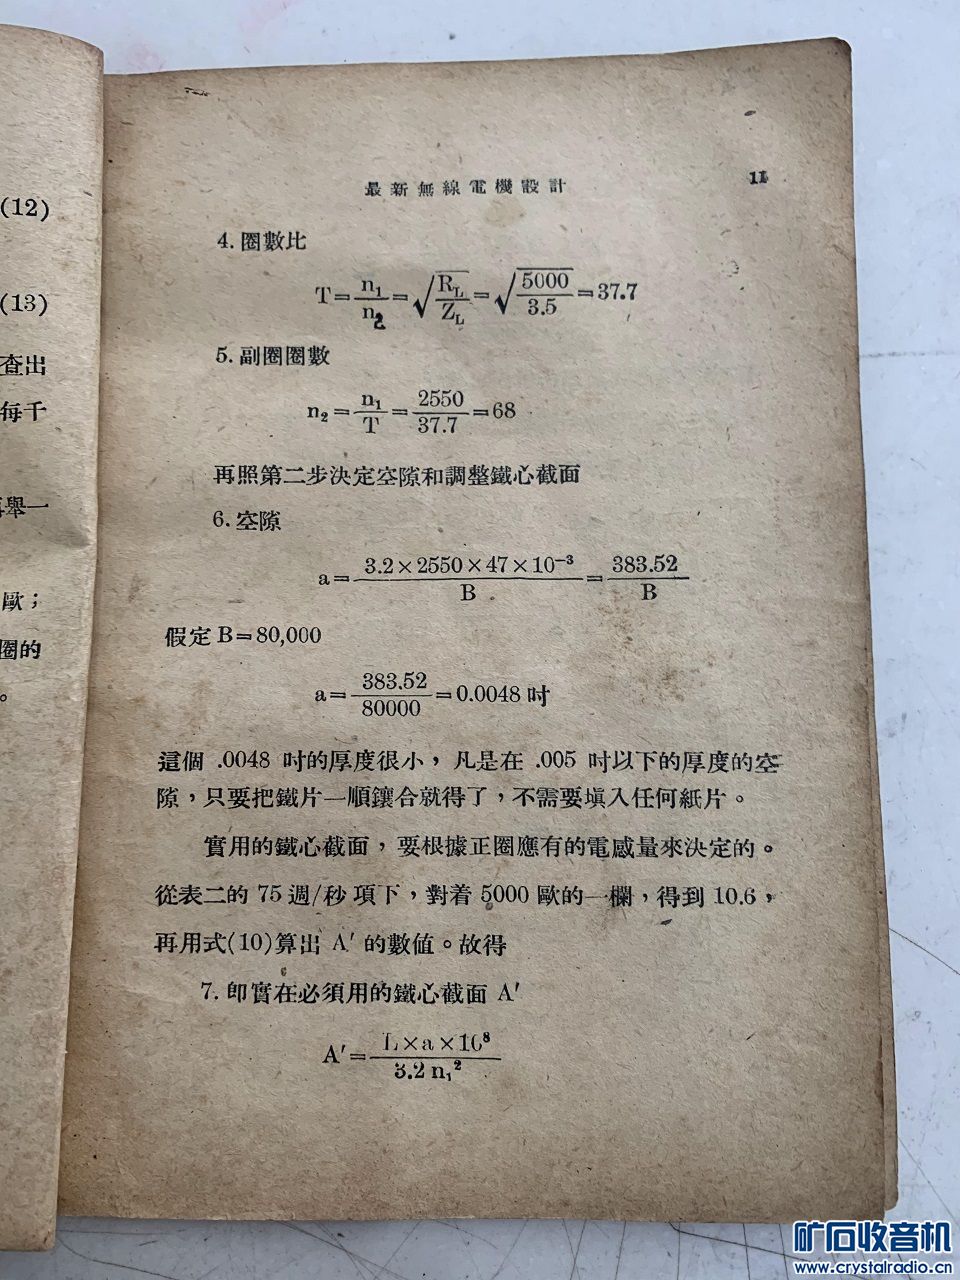 (12)
(13)
查出
每千
再舉一
歐；
圈的
。
最新無線電機設計 11
4. 圈數比
T=n₁/n₂=√(R_L/Z_L)=√(5000/3.5)=37.7
5. 副圈圈數
n₂=n₁/T=2550/37.7=68
再照第二步決定空隙和調整鐵心截面
6. 空隙
a=3.2×2550×47×10⁻³/B=383.52/B
假定 B=80,000
a=383.52/80000=0.0048 吋
這個 .0048 吋的厚度很小，凡是在 .005 吋以下的厚度的空
隙，只要把鐵片一順鑲合就得了，不需要塡入任何紙片。
實用的鐵心截面，要根據正圈應有的電感量來決定的。
從表二的 75 週/秒項下，對着 5000 歐的一欄，得到 10.6，
再用式(10)算出 A′ 的數値。故得
7. 即實在必須用的鐵心截面 A′
A′=L×a×10⁸/3.2 n₁²
矿石收音机
www.crystalradio.cn